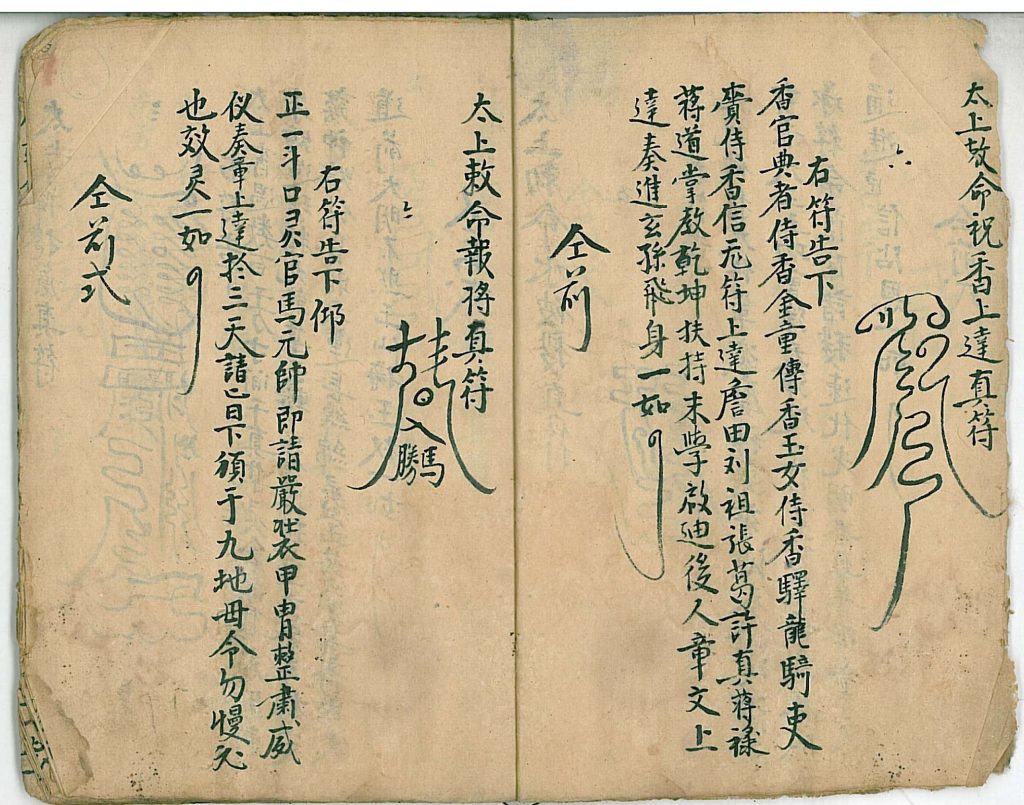 太上敕命祝香上達真符
右符告下
香官典者侍香金童傳香玉女侍香驛龍騎吏
賫侍香信旡符上達詹田刘祖張葛許真蒋禄
蒋道掌教乾坤扶持末學啟迪後人章文上
達奏進玄孫飛身一如
仝前
太上敕命報将真符
右符告下仰
正一斗口灵官馬元帥即請嚴裝甲冑整肅威
仪奏章上達於三天請旨下頒于九地毋令勿慢
也效灵一如
仝前式